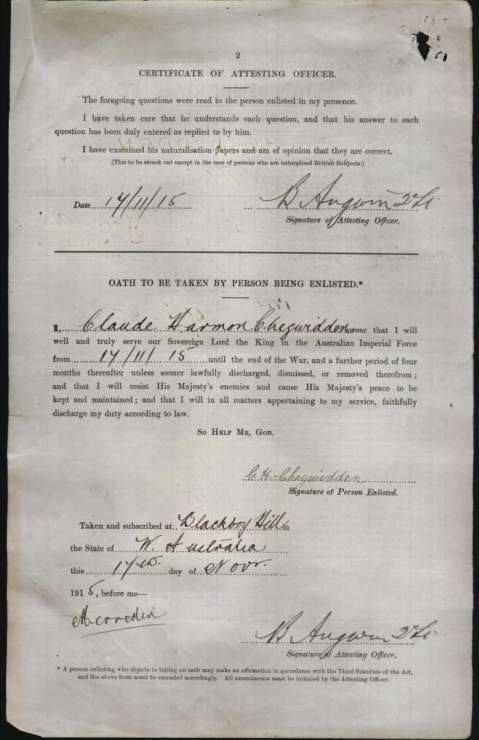 2
CERTIFICATE OF ATTESTING OFFICER.
The foregoing questions were read to the person enlisted in my presence.
I have taken care that he understands each question, and that his answer to each
question has been duly entered as replied to by him.
I have examined his naturalisation papers and am of opinion that they are correct.
(This to be struck out except in the case of persons who are naturalised British Subjects.)
Date 17/11/15 B Angwin 2d Lt
Signature of Attesting Officer.
OATH TO BE TAKEN BY PERSON BEING ENLISTED.*
I, Claude Harmon Chegwidden swear that I will
well and truly serve our Sovereign Lord the King in the Australian Imperial Force
from 17/11/15 until the end of the War, and a further period of four
months thereafter unless sooner lawfully discharged, dismissed, or removed therefrom;
and that I will resist His Majesty's enemies and cause His Majesty's peace to be
kept and maintained; and that I will in all matters appertaining to my service, faithfully
discharge my duty according to law.
So Help Me, God.
C H Chegwidden
Signature of Person Enlisted.
Taken and subscribed at Blackboy Hill in
the State of W. Australia
this 17th day of Novr.
1915, before me—
Merredin
B Angwin 2d Lt
Signature of Attesting Officer.
* A person enlisting who objects to taking an oath may make an affirmation in accordance with the Third Schedule of the Act,
and the above form must be amended accordingly. All amendments must be initialed by the Attesting Officer.